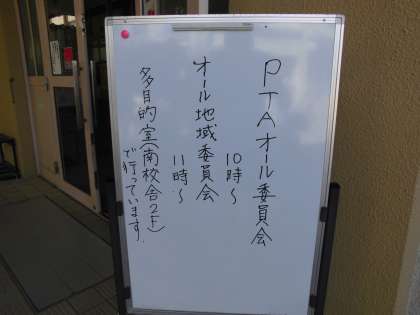 PTAオール委員会
10時~
オール地域委員会
11時~
多目的室(南校合2F)
で行っています。